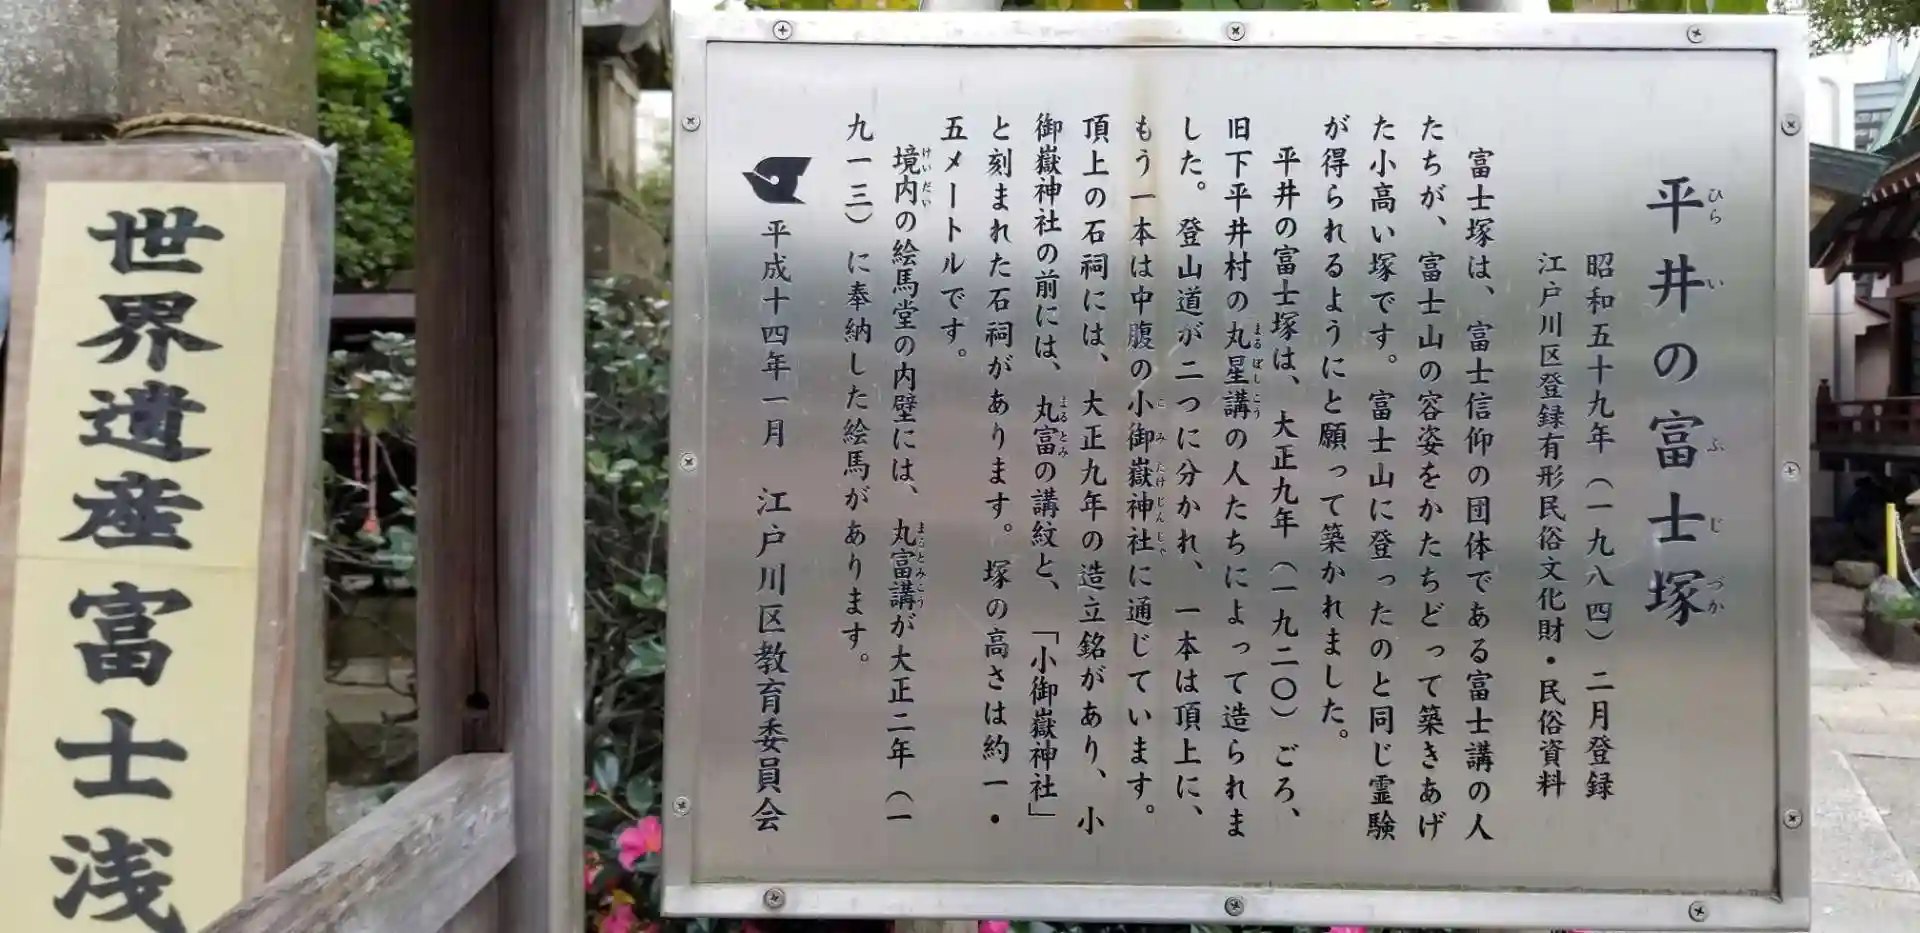 平井の富士塚
ひらいふじづか
昭和五十九年（一九八四）二月登録
江戸川区登録有形民俗文化財・民俗資料
富士塚は、富士信仰の団体である富士講の人
たちが、富士山の容姿をかたちどって築きあげ
た小高い塚です。富士山に登ったのと同じ霊験
が得られるようにと願って築かれました。
平井の富士塚は、大正九年（一九二〇）ごろ、
旧下平井村の丸星講の人たちによって造られま
まるぼしこう
した。登山道が二つに分かれ、一本は頂上に、
もう一本は中腹の小御嶽神社に通じています。
こみたけじんじゃ
頂上の石祠には、大正九年の造立銘があり、小
御嶽神社の前には、丸富の講紋と、「小御嶽神社」
まるとみ
と刻まれた石祠があります。塚の高さは約一・
五メートルです。
境内の絵馬堂の内壁には、丸富講が大正二年（一
けいだい
まるとみこう
九一三）に奉納した絵馬があります。
平成十四年一月 江戸川区教育委員会
世界遺産富士浅